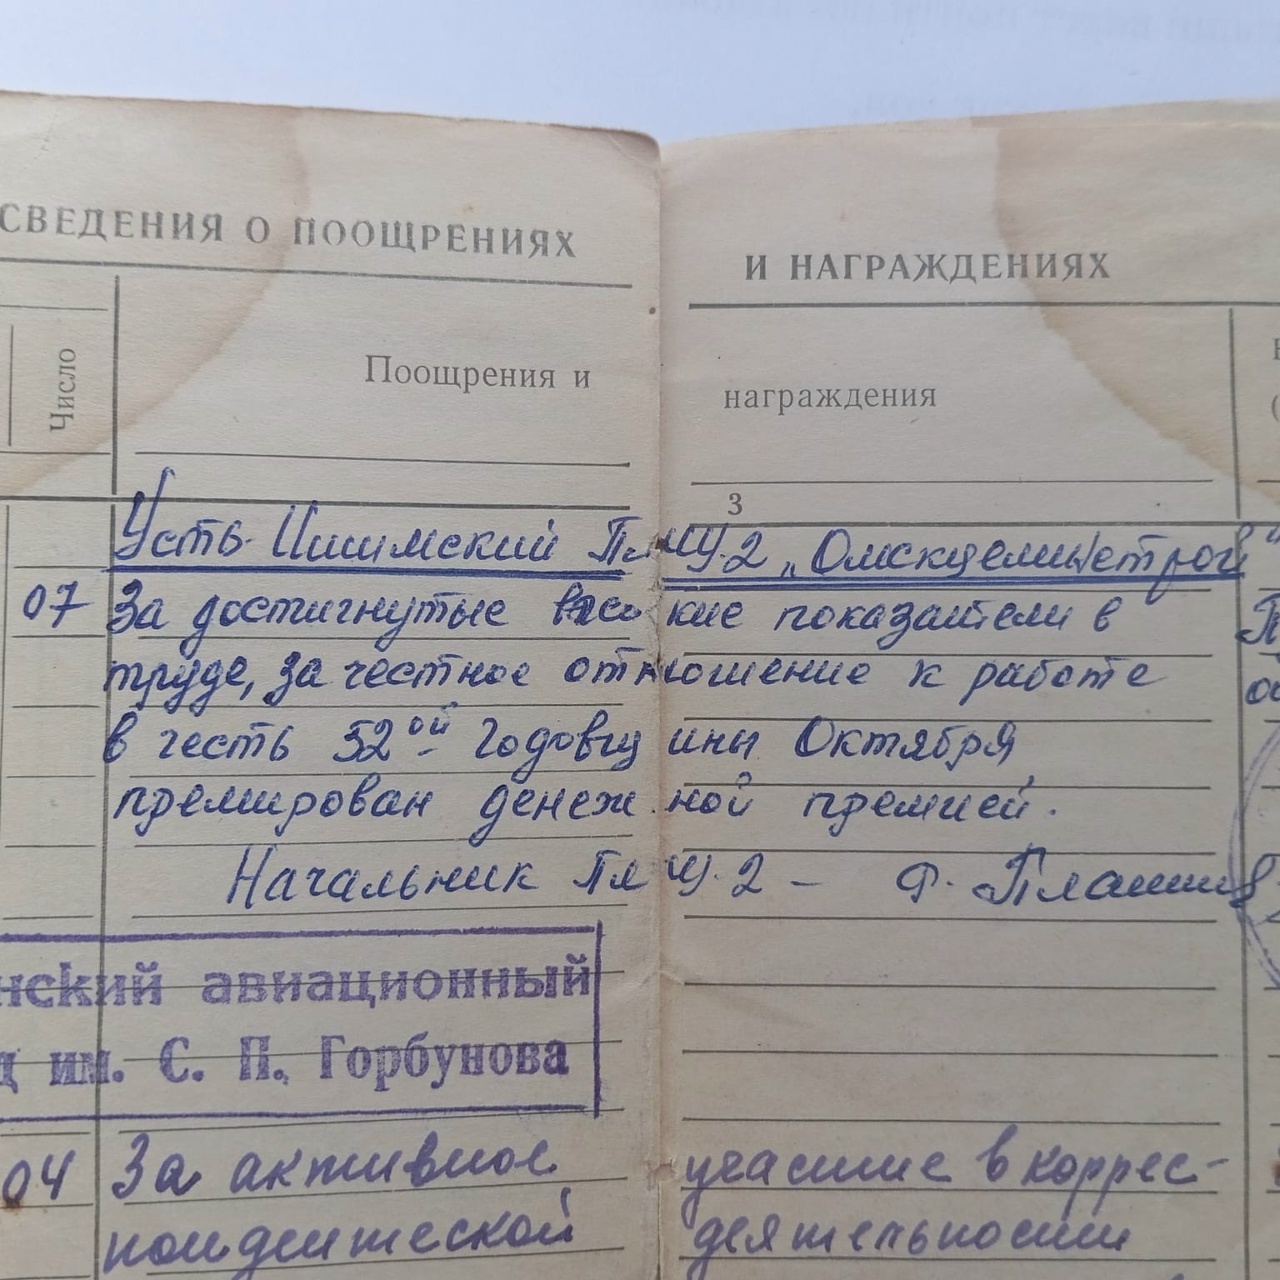 СВЕДЕНИЯ О ПООЩРЕНИЯХ И НАГРАЖДЕНИЯХ
Число
Поощрения и награждения
3
Усть-Ишимский ПлМУ-2 „Омскцелинстрой"
07 За достигнутые высокие показатели в
труде, за честное отношение к работе
в честь 52ой годовщины Октября
премирован денежной премией.
Начальник ПлМУ-2 – Ф.
нский авиационный
д им. С. П. Горбунова
04 За активное участие в коррес-
пондентской деятельности